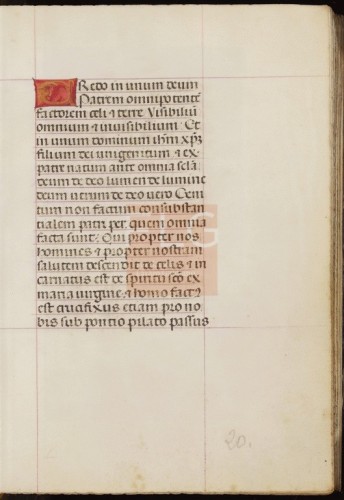 CRedo in unum deum
Patrem omnipotentē
factorem celi & terre visibiliū
omnium & invisibilium: Et
in unum dominum ihm xpm
filium dei unigenitum & ex
patre natum ante omnia sclā
deum de deo lumen de lumine
deum verum de deo vero Geni
tum non factum consubstan
tialem patri per quem omnia
facta sunt: Qui propter nos
homines & propter nostram
salutem descendit de celis & in
carnatus est de spiritu scō ex
maria virgine & homo fact9
est crucifixus etiam pro no
bis sub pontio pilato passus
20.